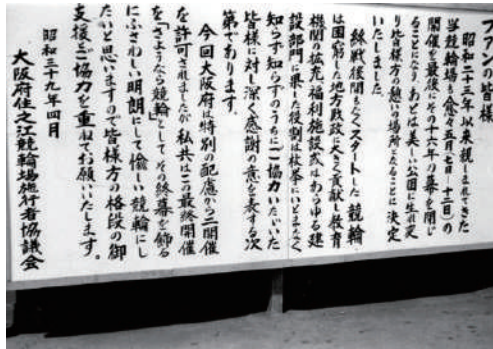 ファンの皆様
昭和二十三年以来親しまれてきた
当競輪場も愈々五月七日―十二日)の
開催を最後にその十六年の幕を閉じ
ることになりあとは美しい公園に生れ変
り皆様方の憩いの場所となることに決定
いたしました。
終戦後間もなくスタートした競輪
は国窮した地方財政に大きく貢献し教育
機関の拡充福利施設或はあらゆる建
設部門に果した役割は枚挙にいとまがなく
知らず知らずのうちにご協力いたゞいた
皆様に対し深く感謝の意を表する次
第であります。
今回大阪府は特別の配慮から二開催
を許可されましたが私共はこの最終開催
を「さようなら競輪」としてその終幕を飾る
にふさわしい明朗にして愉しい競輪にし
たいと思いますので皆様方の格段の御
支援とご協力を重ねてお願いいたします。
昭和三十九年四月
大阪府住之江競輪場施行者協議会